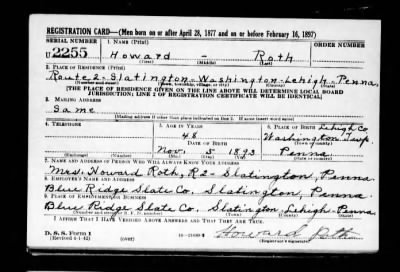 REGISTRATION CARD—(Men born on or after April 28, 1877 and on or before February 16, 1897)
SERIAL NUMBER 1. NAME (Print) ORDER NUMBER
U 2255 Howard - Roth
(First) (Middle) (Last)
2. PLACE OF RESIDENCE (Print)
Route 2-Slatington-Washington-Lehigh-Penna.
[THE PLACE OF RESIDENCE GIVEN ON THE LINE ABOVE WILL DETERMINE LOCAL BOARD
JURISDICTION; LINE 2 OF REGISTRATION CERTIFICATE WILL BE IDENTICAL]
3. MAILING ADDRESS
Same
[Mailing address if other than place indicated on line 2. If same insert word same]
4. TELEPHONE 5. AGE IN YEARS 6. PLACE OF BIRTH Lehigh Co.
48 Washington Twp.
DATE OF BIRTH (Town or county)
Nov. 5 1893 Penna
(Exchange) (Number) (Mo.) (Day) (Yr.) (State or country)
7. NAME AND ADDRESS OF PERSON WHO WILL ALWAYS KNOW YOUR ADDRESS
Mrs. Howard Roth, R2- Slatington, Penna.
8. EMPLOYER'S NAME AND ADDRESS
Blue Ridge Slate Co., Slatington, Penna.
9. PLACE OF EMPLOYMENT OR BUSINESS
Blue Ridge Slate Co. Slatington Lehigh-Penna.
(Number and street or R. F. D. number) (Town) (County) (State)
I AFFIRM THAT I HAVE VERIFIED ABOVE ANSWERS AND THAT THEY ARE TRUE.
D. S. S. Form 1
(Revised 4-1-42) (over) Howard Roth
(Registrant's signature)